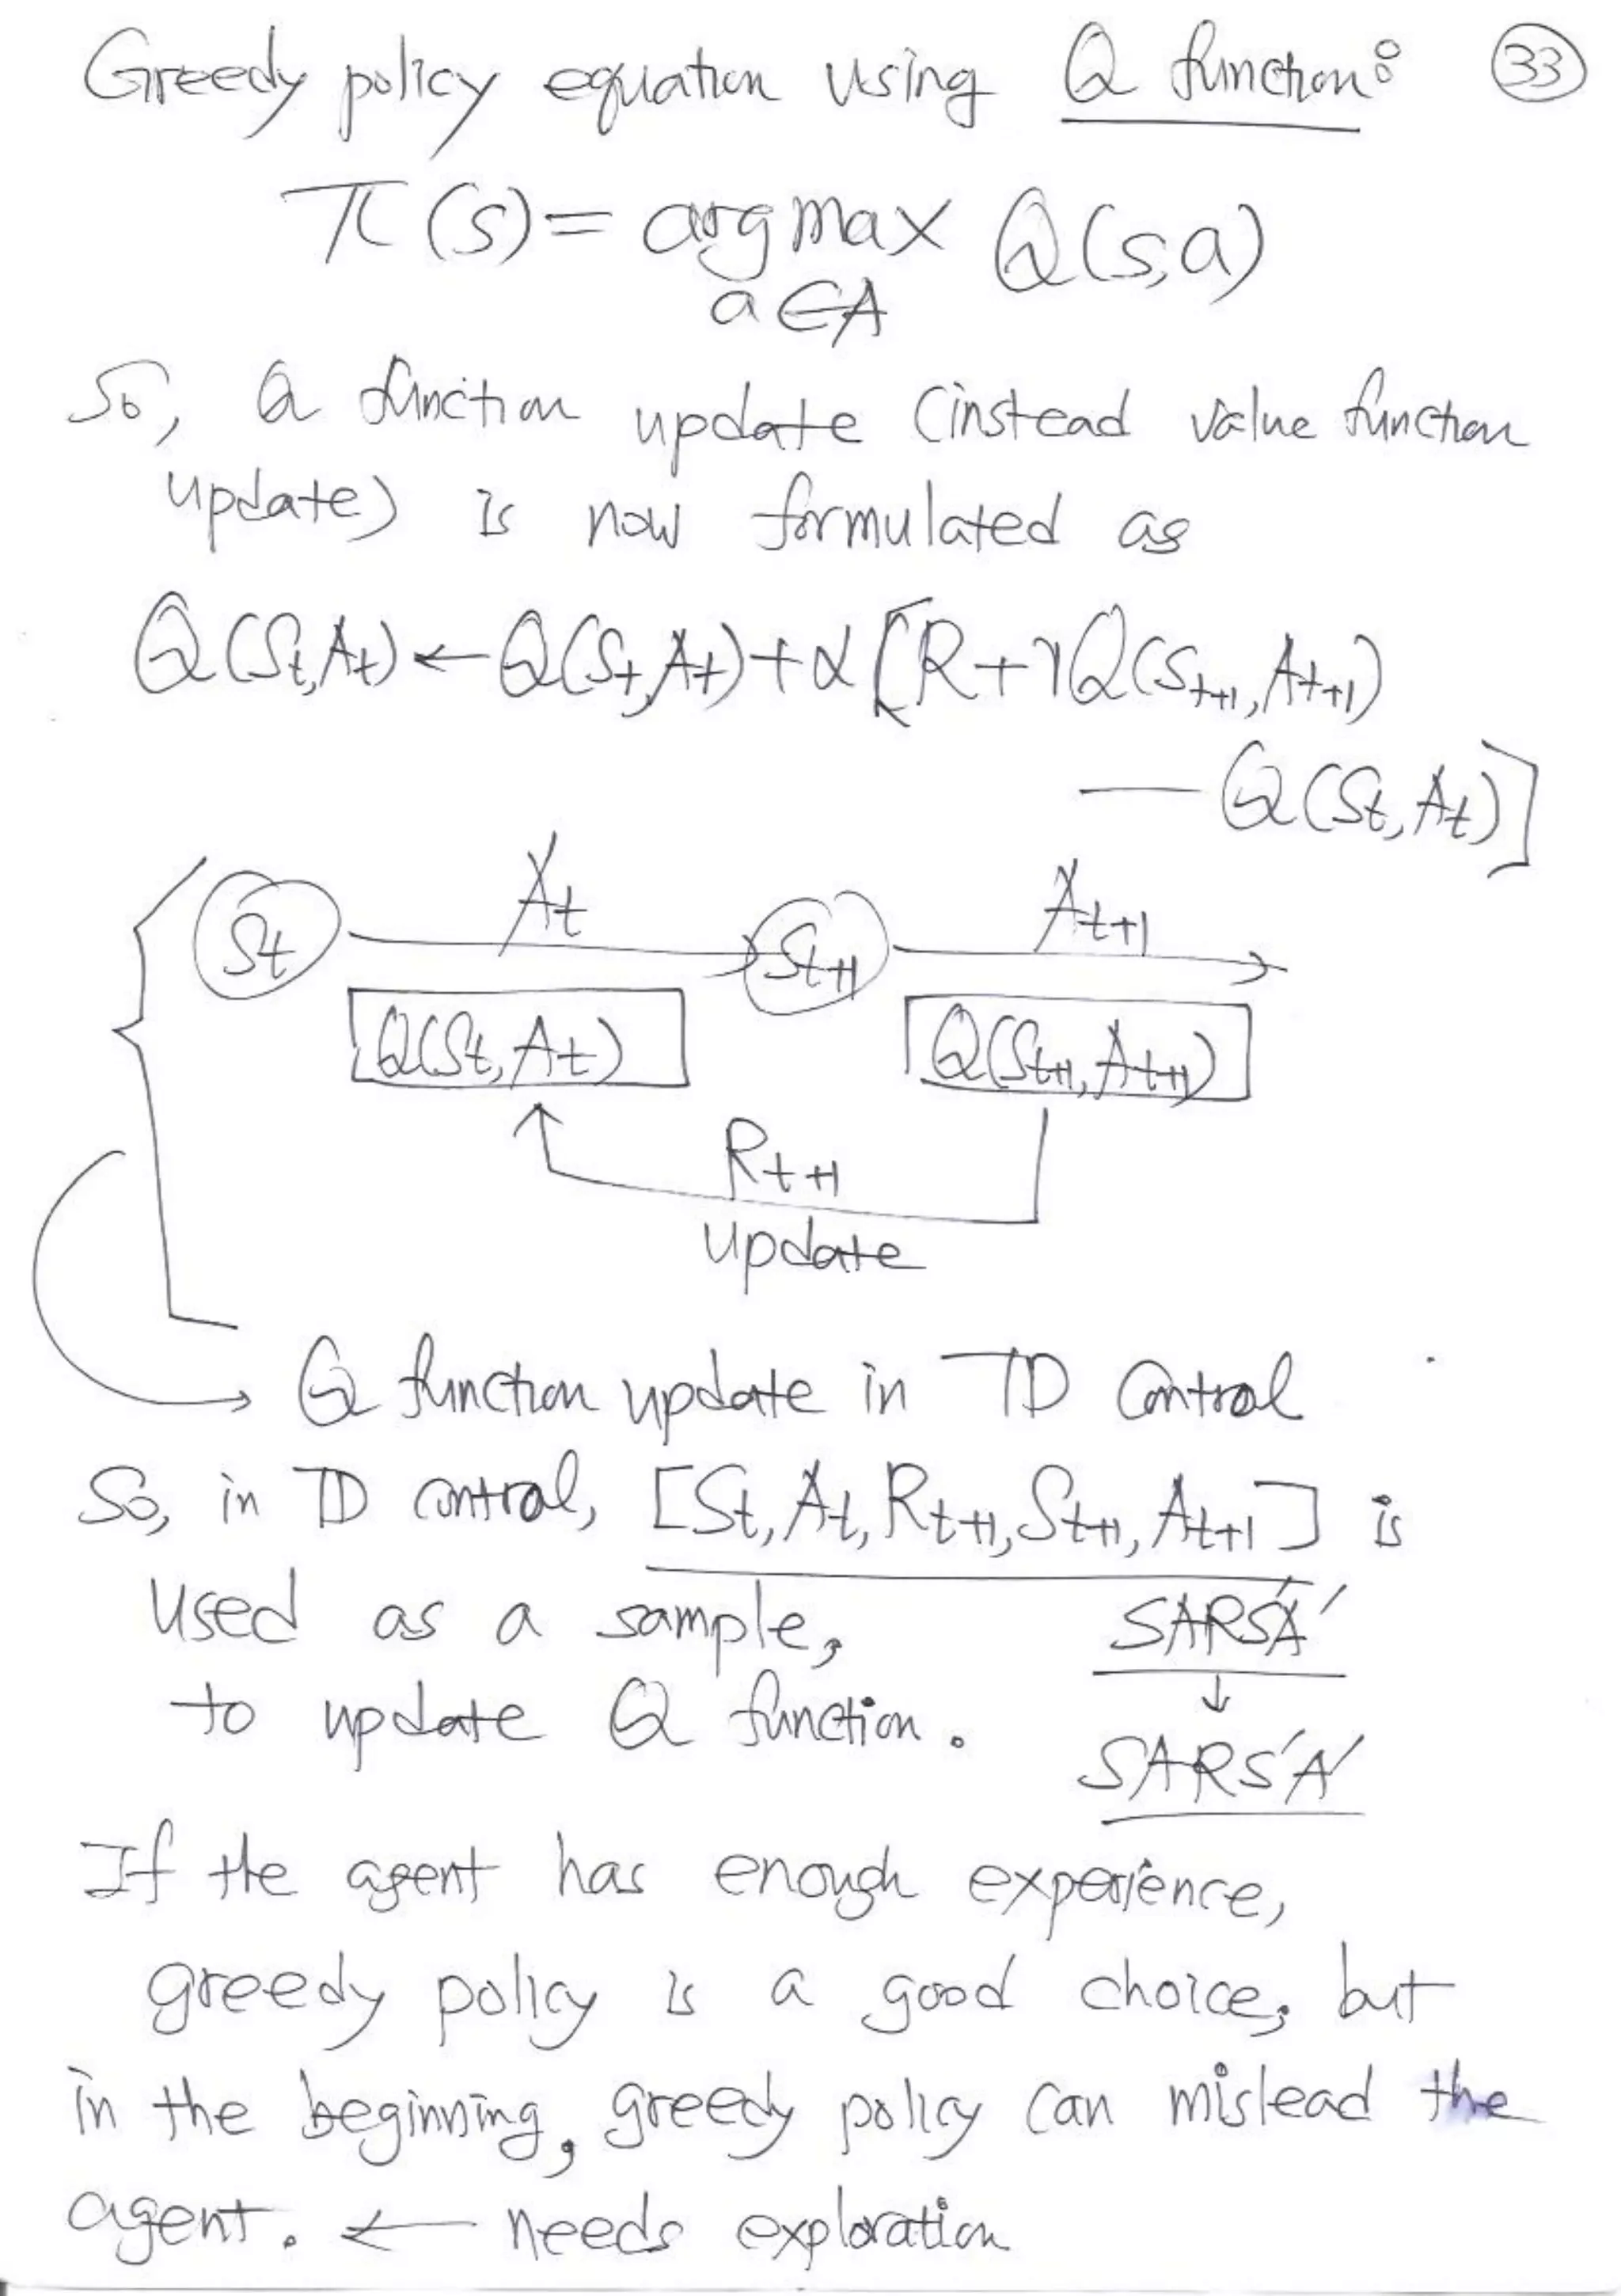 Greedy policy equation using Q function: 33
π(s) = argmax Q(s,a)
a∈A
So, Q function update (instead value function
update) is now formulated as
Q(St,At) ← Q(St,At) + α [R + γQ(St+1, At+1)
— Q(St, At)]
St At St+1 At+1
Q(St, At) Q(St+1, At+1)
Rt+1
update
Q function update in TD Control
So, in TD control, [St, At, Rt+1, St+1, At+1] is
used as a sample, SARS'A'
to update Q function. ↓
SARS'A'
If the agent has enough experience,
greedy policy is a good choice, but
in the beginning, greedy policy can mislead the
agent. ← needs exploration